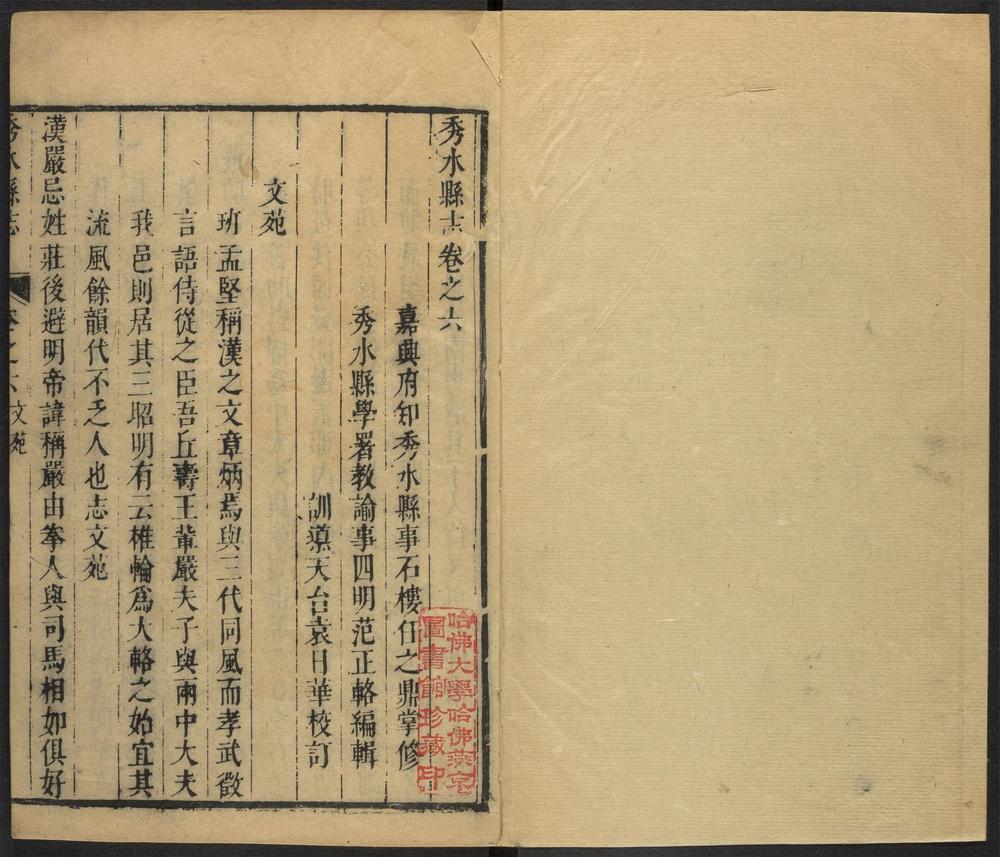 秀水縣志卷之六
嘉興府知秀水縣事石樓任之鼎掌修
秀水縣學署教諭事四明范正輅編輯
訓導天台袁日華校訂
文苑
班孟堅稱漢之文章炳焉與三代同風而孝武徵
言語侍從之臣吾丘壽王軰嚴夫子與兩中大夫
我邑則居其三昭明有云椎輪爲大輅之始宜其
流風餘韻代不乏人也志文苑
漢嚴忌姓莊後避明帝諱稱嚴由拳人與司馬相如俱好
秀水縣志 卷之六 文苑
哈佛大學哈佛燕京
圖書館珍藏印